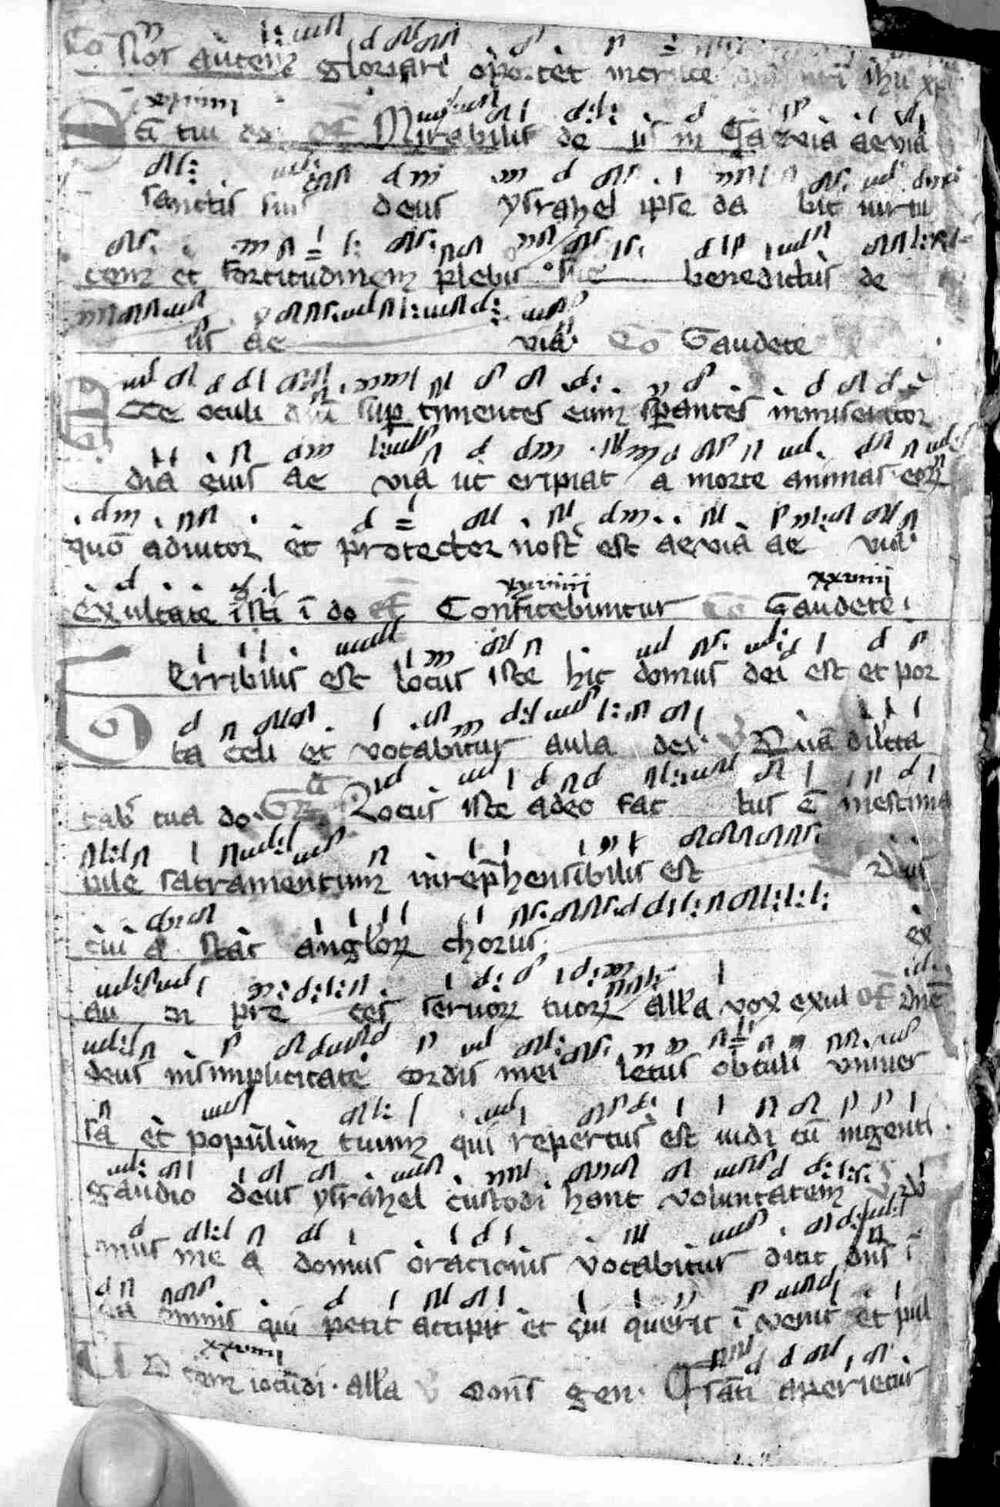 Co Nos autem gloriari oportet in cruce ihu xpi
xxviiii
Sci tui do of Mirabilis de us in Ga via aevia
sanctis suis deus ysrahel ipse da bit uirtu
tem et fortitudinem plebis sue benedictus de
us ae via Co Gaudete
Ecce oculi dni sup timentes eum sperantes in misericor
dia eius ae via ut eripiat a morte animas eorum
quo adiutor et protector nost est aevia ae via
xxviiii xxviiii
Exultate isti i do of Confitebuntur Co Gaudete
Terribilis est locus iste hic domus dei est et por
ta celi et vocabitur aula dei V Quã dilcta
tab tua do Gr Locus iste a deo fac tus e inestima
bile sacramentum inrephensibilis est deus
cui a stat anglorum chorus ex
au di pre ces seruorum tuorum alla vox exul of dne
deus in simplicitate cordis mei letus obtuli vniuer
sa et populum tuum qui repertus est uidi cu ingenti
gaudio deus ysrahel custodi hanc voluntatem
mus me a domus oracionis vocabitur dicit dns i
ea omnis qui petit accipit et qui querit i venit et pul
xxviiii
tem iocudi alla V gen sati aperietur